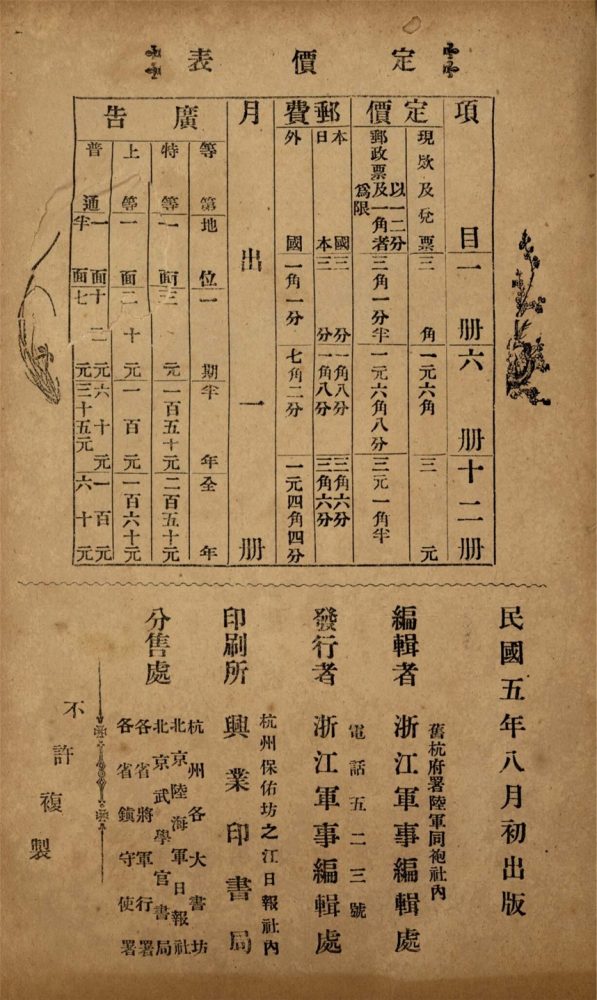 定價表
項目 一冊 六冊 十二冊
定價
現欵及兌票 三角 一元六角 三元
郵政票以一二分及一角者爲限 三角一分半 一元六角八分 三元一角半
郵費
本國 三分 一角八分 三角六分
日本 三分 一角八分 三角六分
外國 一角一分 七角二分 一元四角四分
月出一冊
廣告
等第 地位 一期 半年 全年
特等 一面 三 元 一百五十元 二百五十元
上等 一面 二十元 一百元 一百六十元
普通 一面 十二元 六十元 一百元
半面 七元 三十五元 六十元
民國五年八月初出版
舊杭府署陸軍同袍社內
編輯者 浙江軍事編輯處
電話五二三號
發行者 浙江軍事編輯處
杭州保佑坊之江日報社內
印刷所 興業印書局
分售處
杭州各大書坊
北京陸海軍日報社
北京武學官書局
各省將軍行署
各省鎮守使署
不許複製